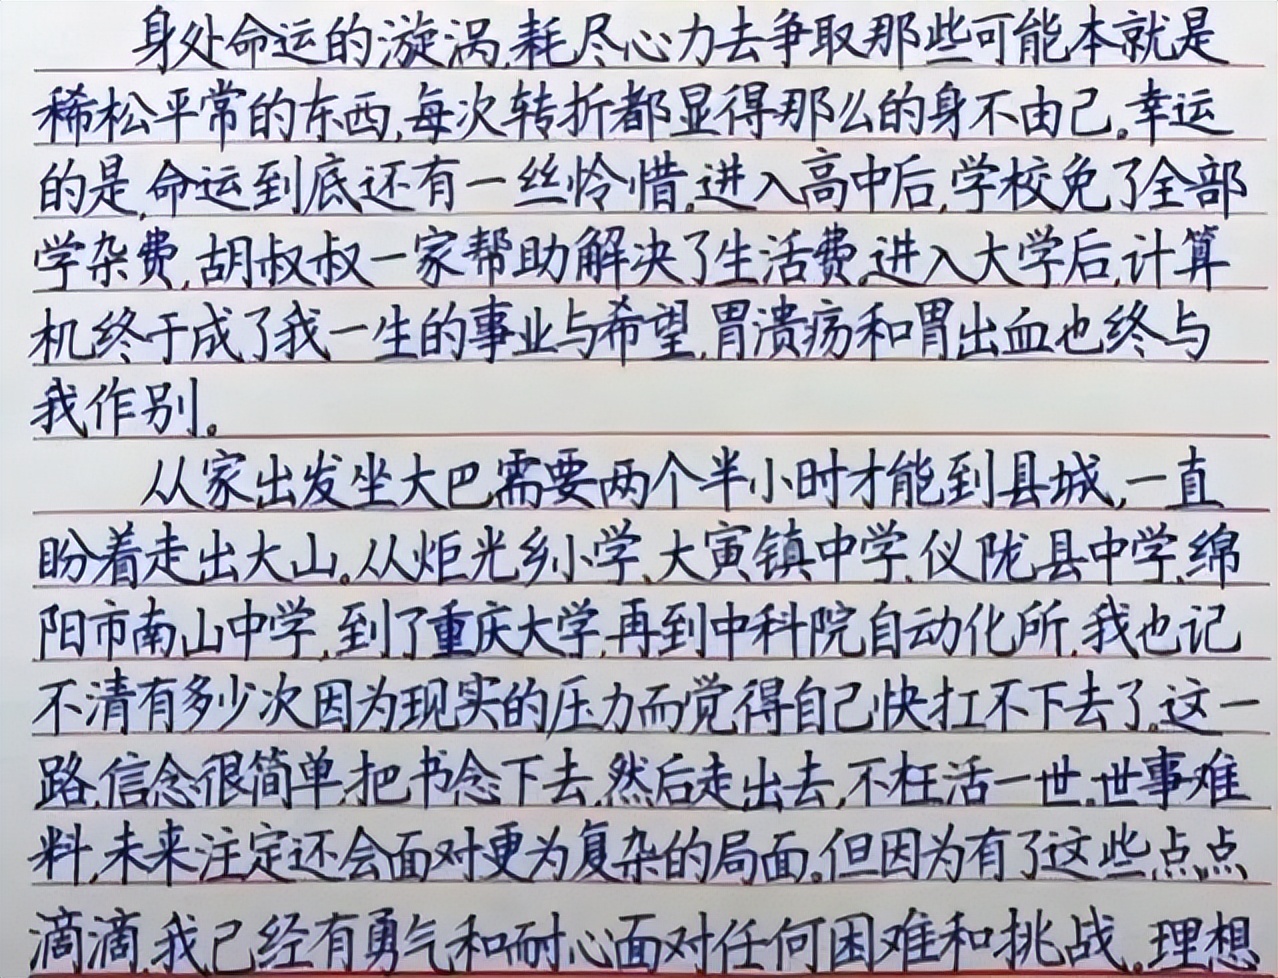 身处命运的漩涡,耗尽心力去争取那些可能本就是
稀松平常的东西,每次转折都显得那么的身不由己。幸运
的是,命运到底还有一丝怜惜。进入高中后,学校免了全部
学杂费,胡叔叔一家帮助解决了生活费。进入大学后,计算
机终于成了我一生的事业与希望,胃溃疡和胃出血也终与
我作别。
从家出发坐大巴需要两个半小时才能到县城,一直
盼着走出大山。从炬光乡小学、大寅镇中学、仪陇县中学、绵
阳市南山中学,到了重庆大学,再到中科院自动化所,我也记
不清有多少次因为现实的压力而觉得自己快扛不下去了。这一
路,信念很简单,把书念下去,然后走出去,不枉活一世。世事难
料,未来注定还会面对更为复杂的局面。但因为有了这些点点
滴滴,我已经有勇气和耐心面对任何困难和挑战。理想